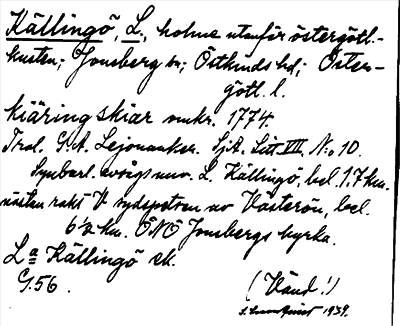 Källingö, L., holme utanför östergötl.-
kusten; Jonsberg sn; Östkinds hd; Öster-
götl. l.
Kiäringskiär omkr. 1774.
Trol. G. A. Lejonanker. SjA. Litt VII. No 10.
Synbarl. nuv. L. Källingö, bel. 1.7 km.
nästan rakt V sydspetsen av Västerön, bel.
6 ½ km. ÖNÖ Jonsbergs kyrka.
La Källingö ek.
G.56. (Känd!)
1939.